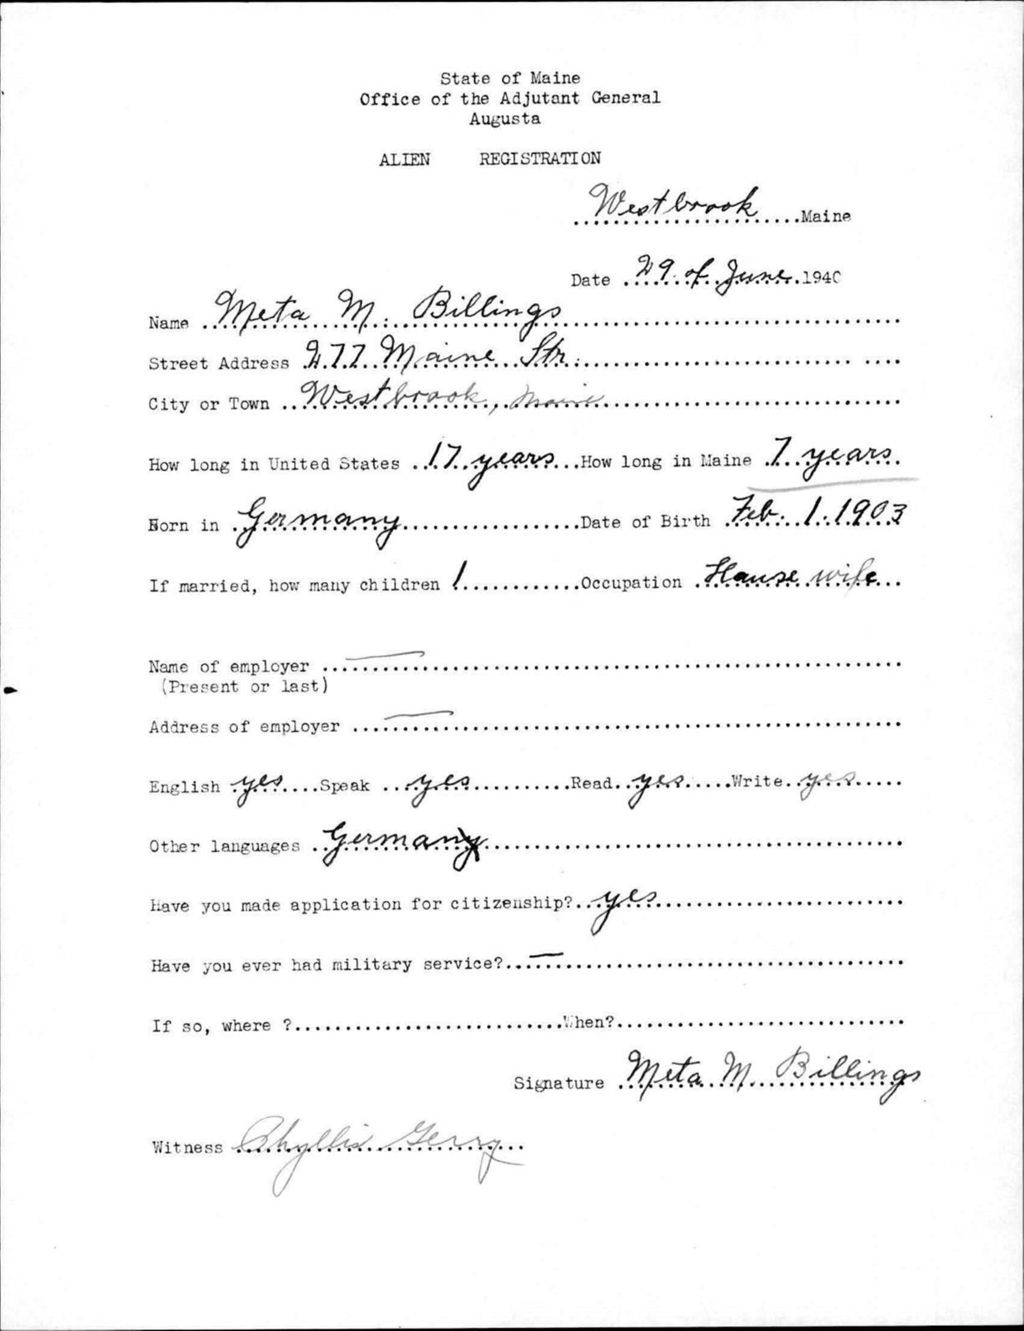 State of Maine
Office of the Adjutant General
Augusta
ALIEN REGISTRATION
Westbrook Maine
Date 29. of June. 1940
Name Meta M. Billings
Street Address 277 Maine Str.
City or Town Westbrook, Maine
How long in United States 17 years How long in Maine 7 years
Born in Germany Date of Birth Feb. 1. 1903
If married, how many children 1 Occupation House wife
Name of employer —
(Present or last)
Address of employer —
English yes Speak yes Read yes Write yes
Other languages German
Have you made application for citizenship? yes
Have you ever had military service? —
If so, where ? When?
Signature Meta M. Billings
Witness Phyllis Gerry